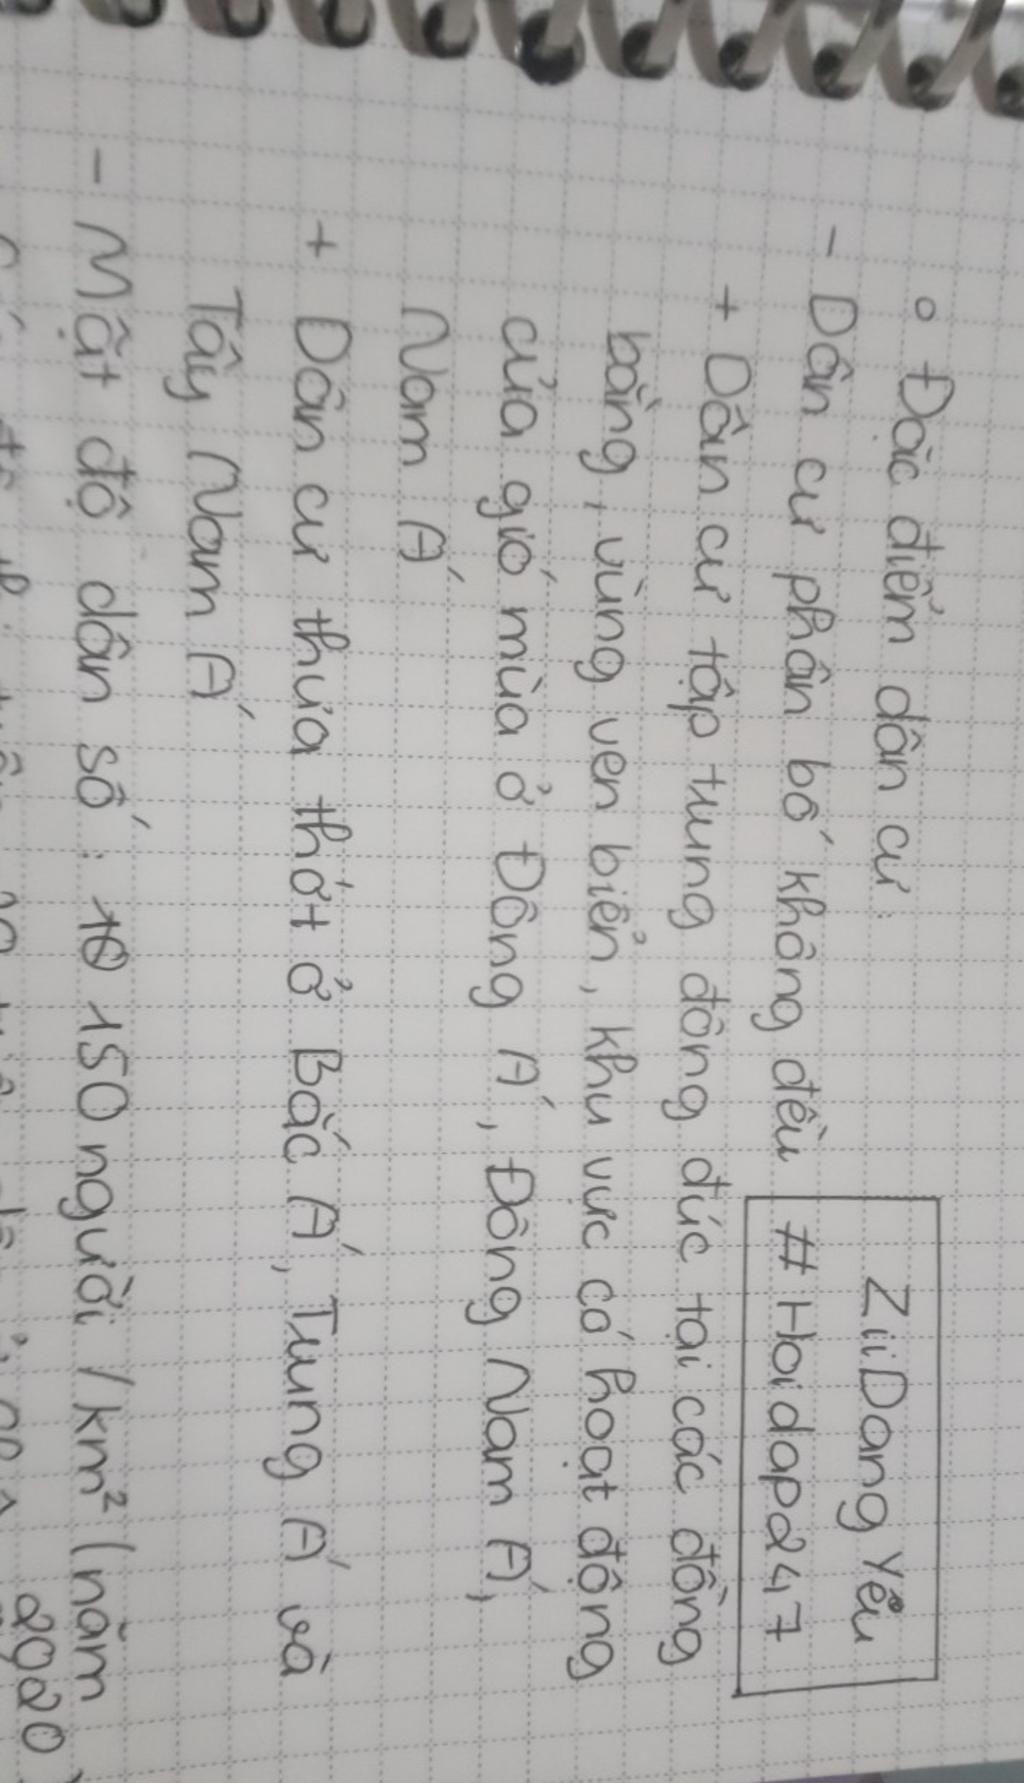 ZiiDangYêu
# Hoidap247
° Đặc điểm dân cư:
- Dân cư phân bố không đều
+ Dân cư tập trung đông đúc tại các đồng
bằng, vùng ven biển, khu vực có hoạt động
của gió mùa ở Đông Á, Đông Nam Á,
Nam Á
+ Dân cư thưa thớt ở Bắc Á, Trung Á và
Tây Nam Á
- Mật độ dân số: 150 người /km² (năm
2020)